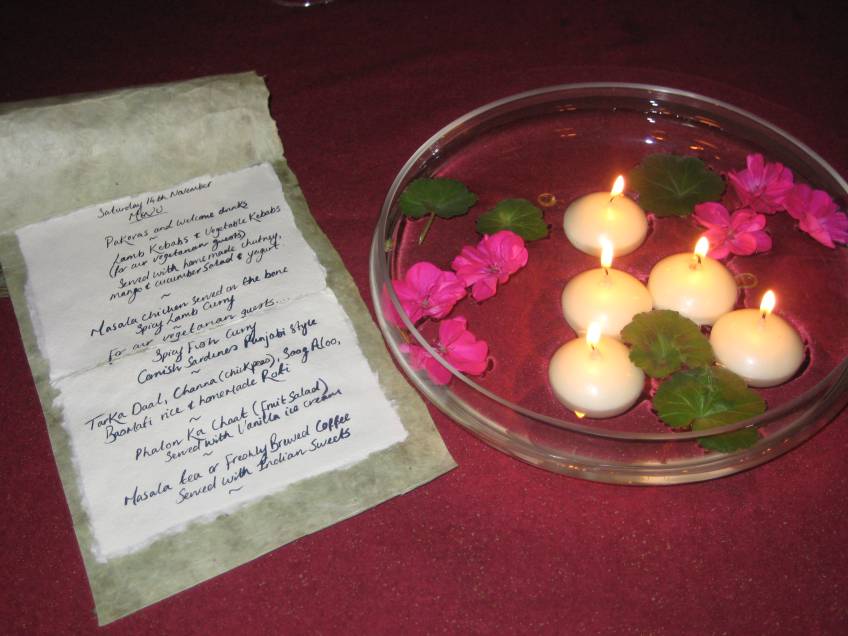 Saturday 14th November
MENU
Pakoras and welcome drinks
~
Lamb Kebabs & Vegetable Kebabs
(for our vegetarian guests)
Served with homemade chutney,
mango & cucumber salad & yogurt.
~
Masala chicken served on the bone
Spicy Lamb Curry
~
For our vegetarian guests....
Spicy Fish Curry
Cornish Sardines Punjabi Style
~
Tarka Daal, Channa (chickpeas), Saag Aloo,
Basmati rice & homemade Roti
~
Phalon Ka Chaat (Fruit Salad)
Served with Vanilla ice cream
~
Masala tea or Freshly Brewed Coffee
Served with Indian Sweets
~